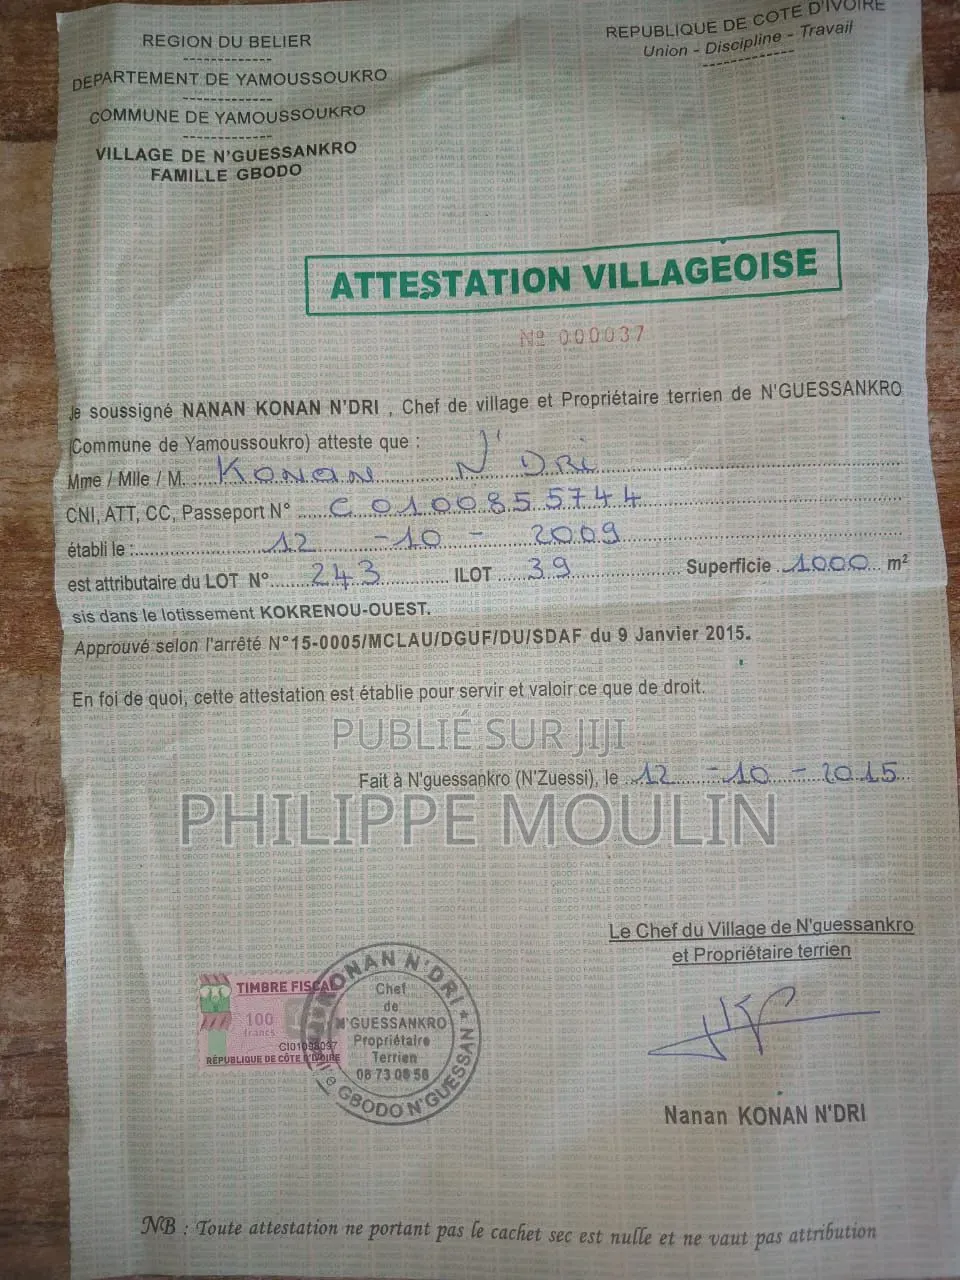 REGION DU BELIER
-------------
DEPARTEMENT DE YAMOUSSOUKRO
-------------
COMMUNE DE YAMOUSSOUKRO
-------------
VILLAGE DE N'GUESSANKRO
FAMILLE GBODO
REPUBLIQUE DE COTE D'IVOIRE
Union - Discipline - Travail
-------------
ATTESTATION VILLAGEOISE
Nº 000037
Je soussigné NANAN KONAN N'DRI , Chef de village et Propriétaire terrien de N'GUESSANKRO
(Commune de Yamoussoukro) atteste que :
Mme / Mlle / M. KONAN N'DRI
CNI, ATT, CC, Passeport N° C 0100855744
établi le : 12 - 10 - 2009
est attributaire du LOT N° 243 ILOT 39 Superficie 1000 m²
sis dans le lotissement KOKRENOU-OUEST.
Approuvé selon l'arrêté N°15-0005/MCLAU/DGUF/DU/SDAF du 9 Janvier 2015.
En foi de quoi, cette attestation est établie pour servir et valoir ce que de droit.
PUBLIÉ SUR JIJI
Fait à N'guessankro (N'Zuessi), le 12 - 10 - 2015
PHILIPPE MOULIN
Le Chef du Village de N'guessankro
et Propriétaire terrien
TIMBRE FISCAL
100
francs
RÉPUBLIQUE DE CÔTE D'IVOIRE
KONAN N'DRI
Chef
de
N'GUESSANKRO
Propriétaire
Terrien
08 73 08 58
GBODO N'GUESSAN
Nanan KONAN N'DRI
NB : Toute attestation ne portant pas le cachet sec est nulle et ne vaut pas attribution